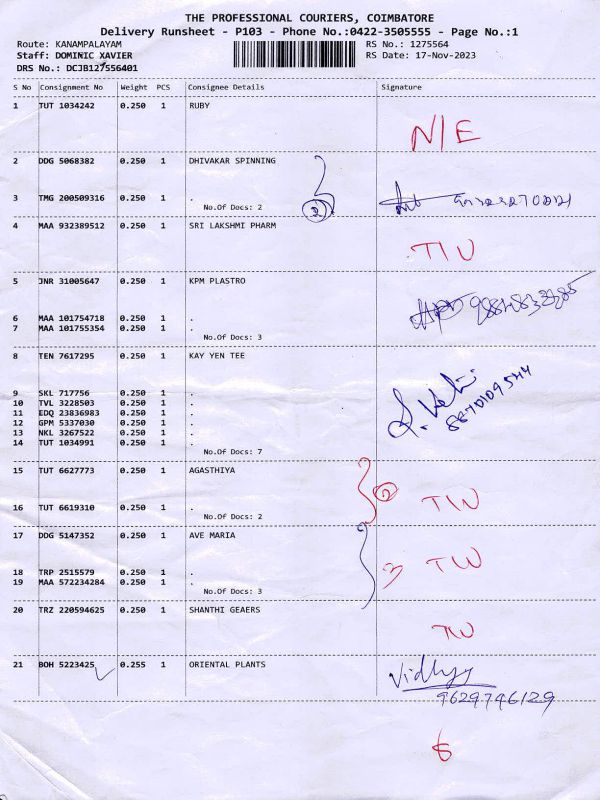 THE PROFESSIONAL COURIERS, COIMBATORE
Delivery Runsheet - P103 - Phone No.:0422-3505555 - Page No.:1
Route: KANAMPALAYAM RS No.: 1275564
Staff: DOMINIC XAVIER RS Date: 17-Nov-2023
DRS No.: DCJB127556401
S No Consignment No Weight PCS Consignee Details Signature
1 TUT 1034242 0.250 1 RUBY
N/E
2 DDG 5068382 0.250 1 DHIVAKAR SPINNING
3 TMG 200509316 0.250 1 .
No.Of Docs: 2 2
4 MAA 932389512 0.250 1 SRI LAKSHMI PHARM
TW
5 JNR 31005647 0.250 1 KPM PLASTRO
6 MAA 101754718 0.250 1 .
7 MAA 101755354 0.250 1 .
No.Of Docs: 3
8 TEN 7617295 0.250 1 KAY YEN TEE
9 SKL 717756 0.250 1 .
10 TVL 3228503 0.250 1 .
11 EDQ 23836983 0.250 1 .
12 GPM 5337030 0.250 1 .
13 NKL 3267522 0.250 1 .
14 TUT 1034991 0.250 1 .
No.Of Docs: 7
8870109544
15 TUT 6627773 0.250 1 AGASTHIYA
2 TW
16 TUT 6619310 0.250 1 .
No.Of Docs: 2
17 DDG 5147352 0.250 1 AVE MARIA
3 TW
18 TRP 2515579 0.250 1 .
19 MAA 572234284 0.250 1 .
No.Of Docs: 3
20 TRZ 220594625 0.250 1 SHANTHI GEAERS
TW
21 BOH 5223425 0.255 1 ORIENTAL PLANTS
Vidhyy
9629746129
6